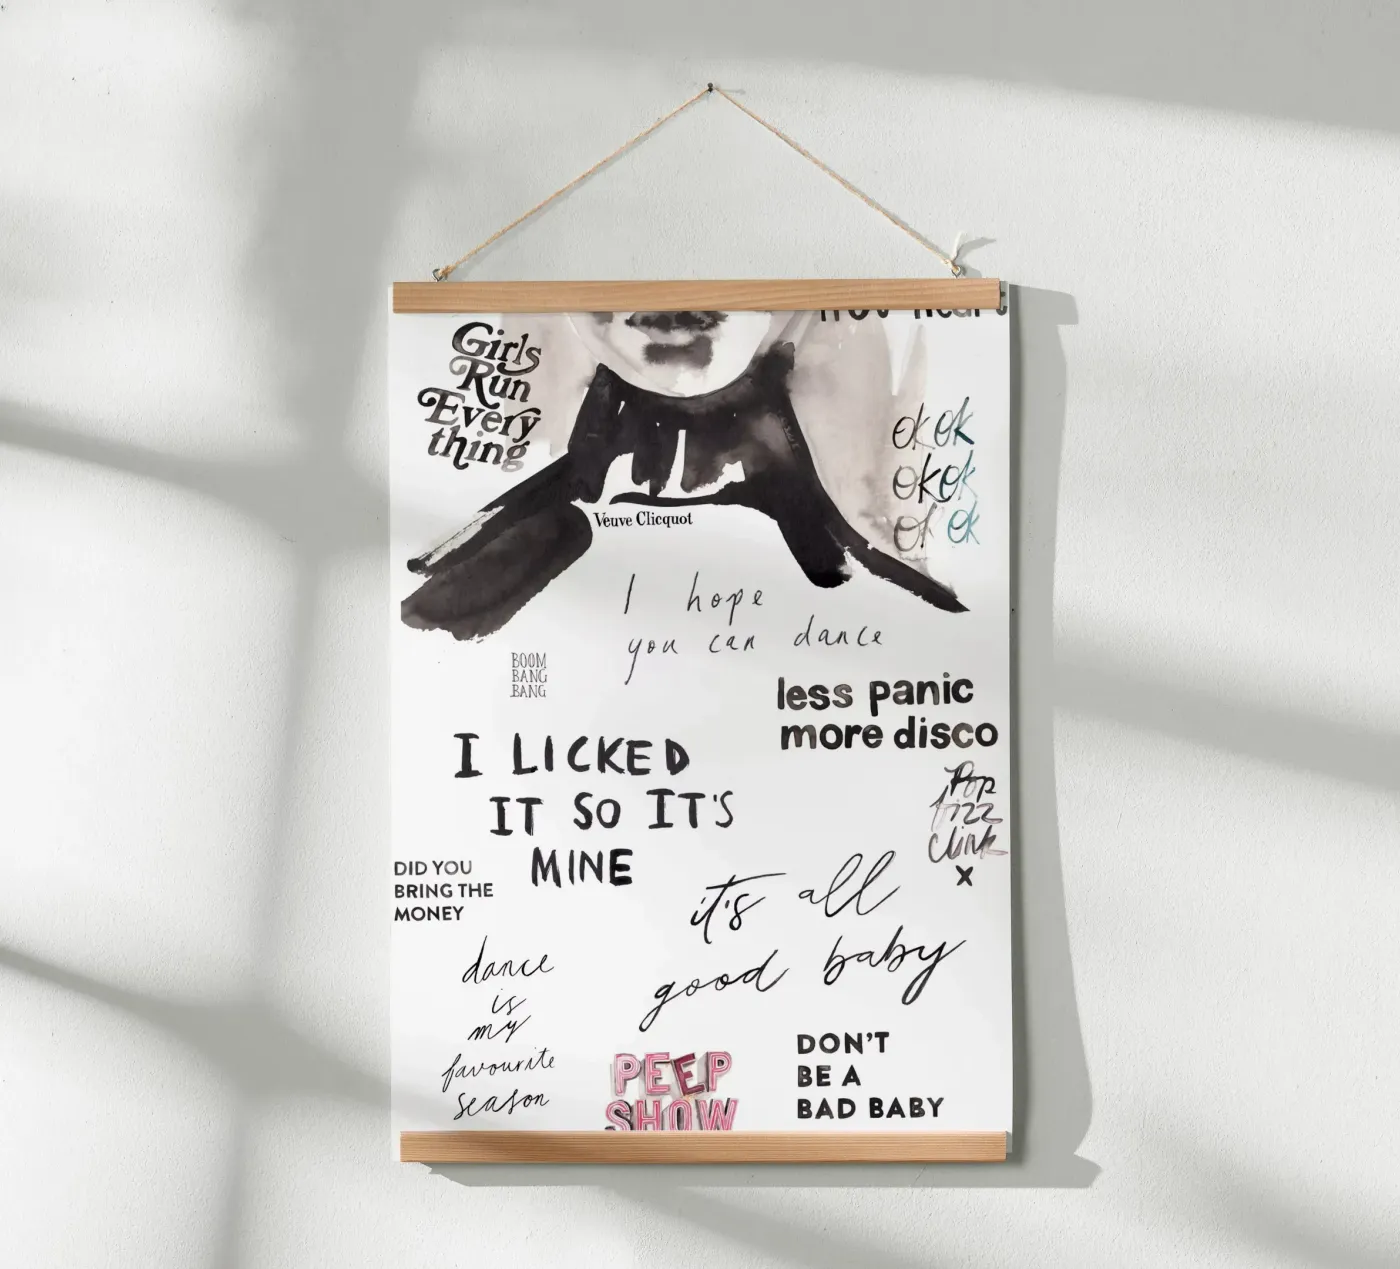 Girls
Run
Every
thing
ok ok
ok ok
ok ok
Veuve Clicquot
I hope
you can dance
BOOM
BANG
BANG
less panic
more disco
I LICKED
IT SO IT'S
MINE
Pop
fizz
clink
x
DID YOU
BRING THE
MONEY
it's all
good baby
dance
is
my
favourite
season
PEEP
SHOW
DON'T
BE A
BAD BABY